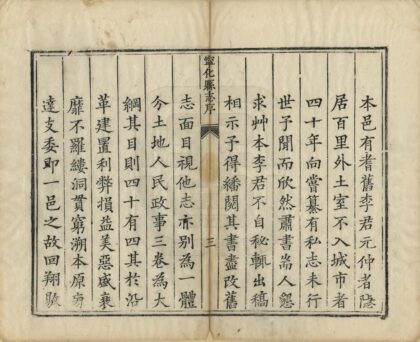 本邑有耆舊李君元仲者隱
居百里外土室不入城市者
四十年向嘗纂有私志未行
世予聞而欣然肅書耑人懇
求艸本李君不自秘輒出稿
相示予得繙閱其書盡改舊
寧化縣志序
三
志面目視他志亦别為一體
分土地人民政事三卷為大
綱其目則四十有四其於沿
革建置利弊損益美惡盛衰
靡不羅縷洞貫窮溯本原旁
達支委即一邑之故回翔